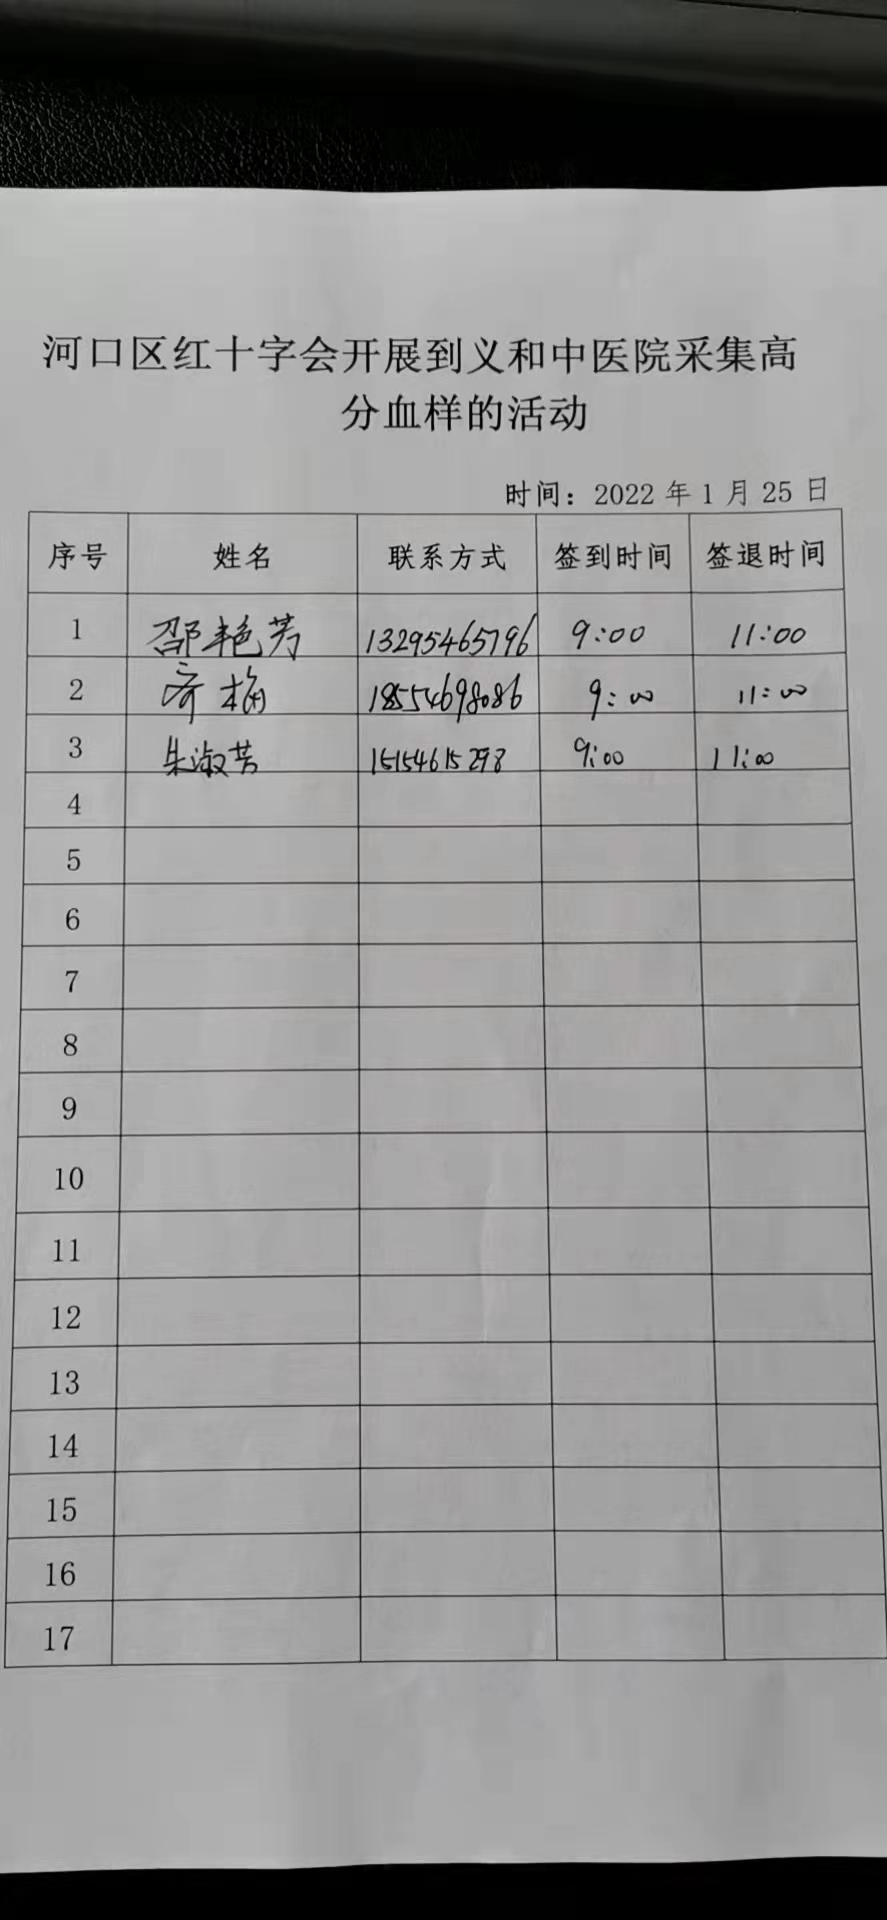 河口区红十字会开展到义和中医院采集高
分血样的活动
时间：2022 年 1 月 25 日
序号 姓名 联系方式 签到时间 签退时间
1 邵艳芳 13295465796 9:00 11:00
2 齐梅 18554698086 9:00 11:00
3 朱淑芳 15154615298 9:00 11:00
4
5
6
7
8
9
10
11
12
13
14
15
16
17